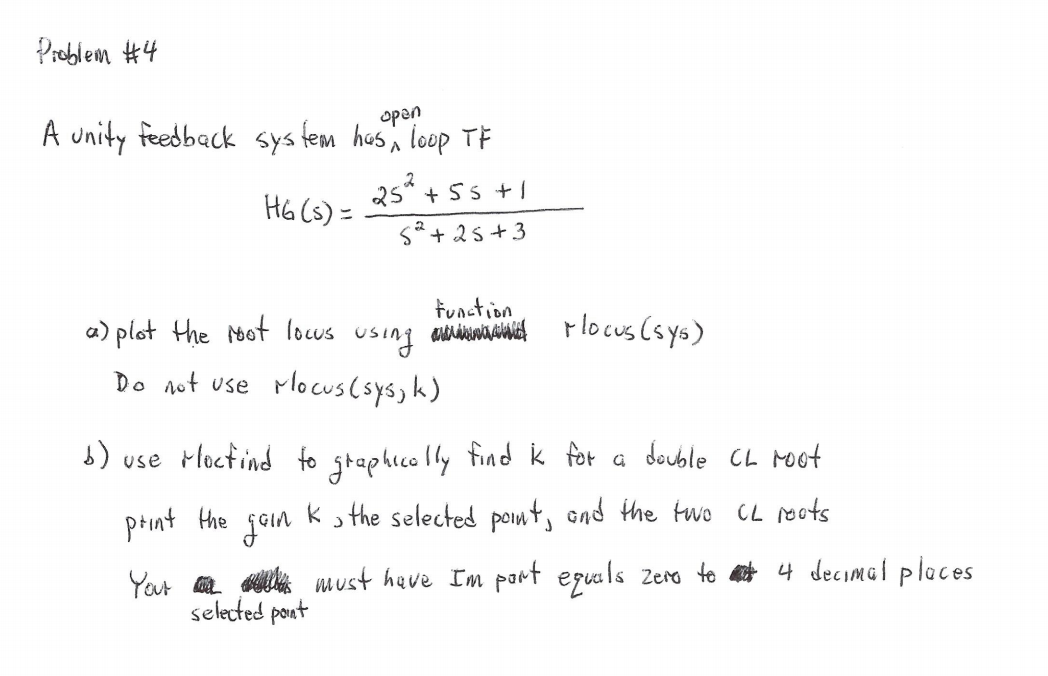 Problem #4
A unity feedback system has open loop TF
HG(s) = 2s² + 5s + 1
s² + 2s + 3
a) plot the root locus using function rlocus(sys)
Do not use rlocus(sys,k)
b) use rlocfind to graphically find k for a double CL root
print the gain k, the selected point, and the two CL roots
Your selected point must have Im part equals zero to 4 decimal places